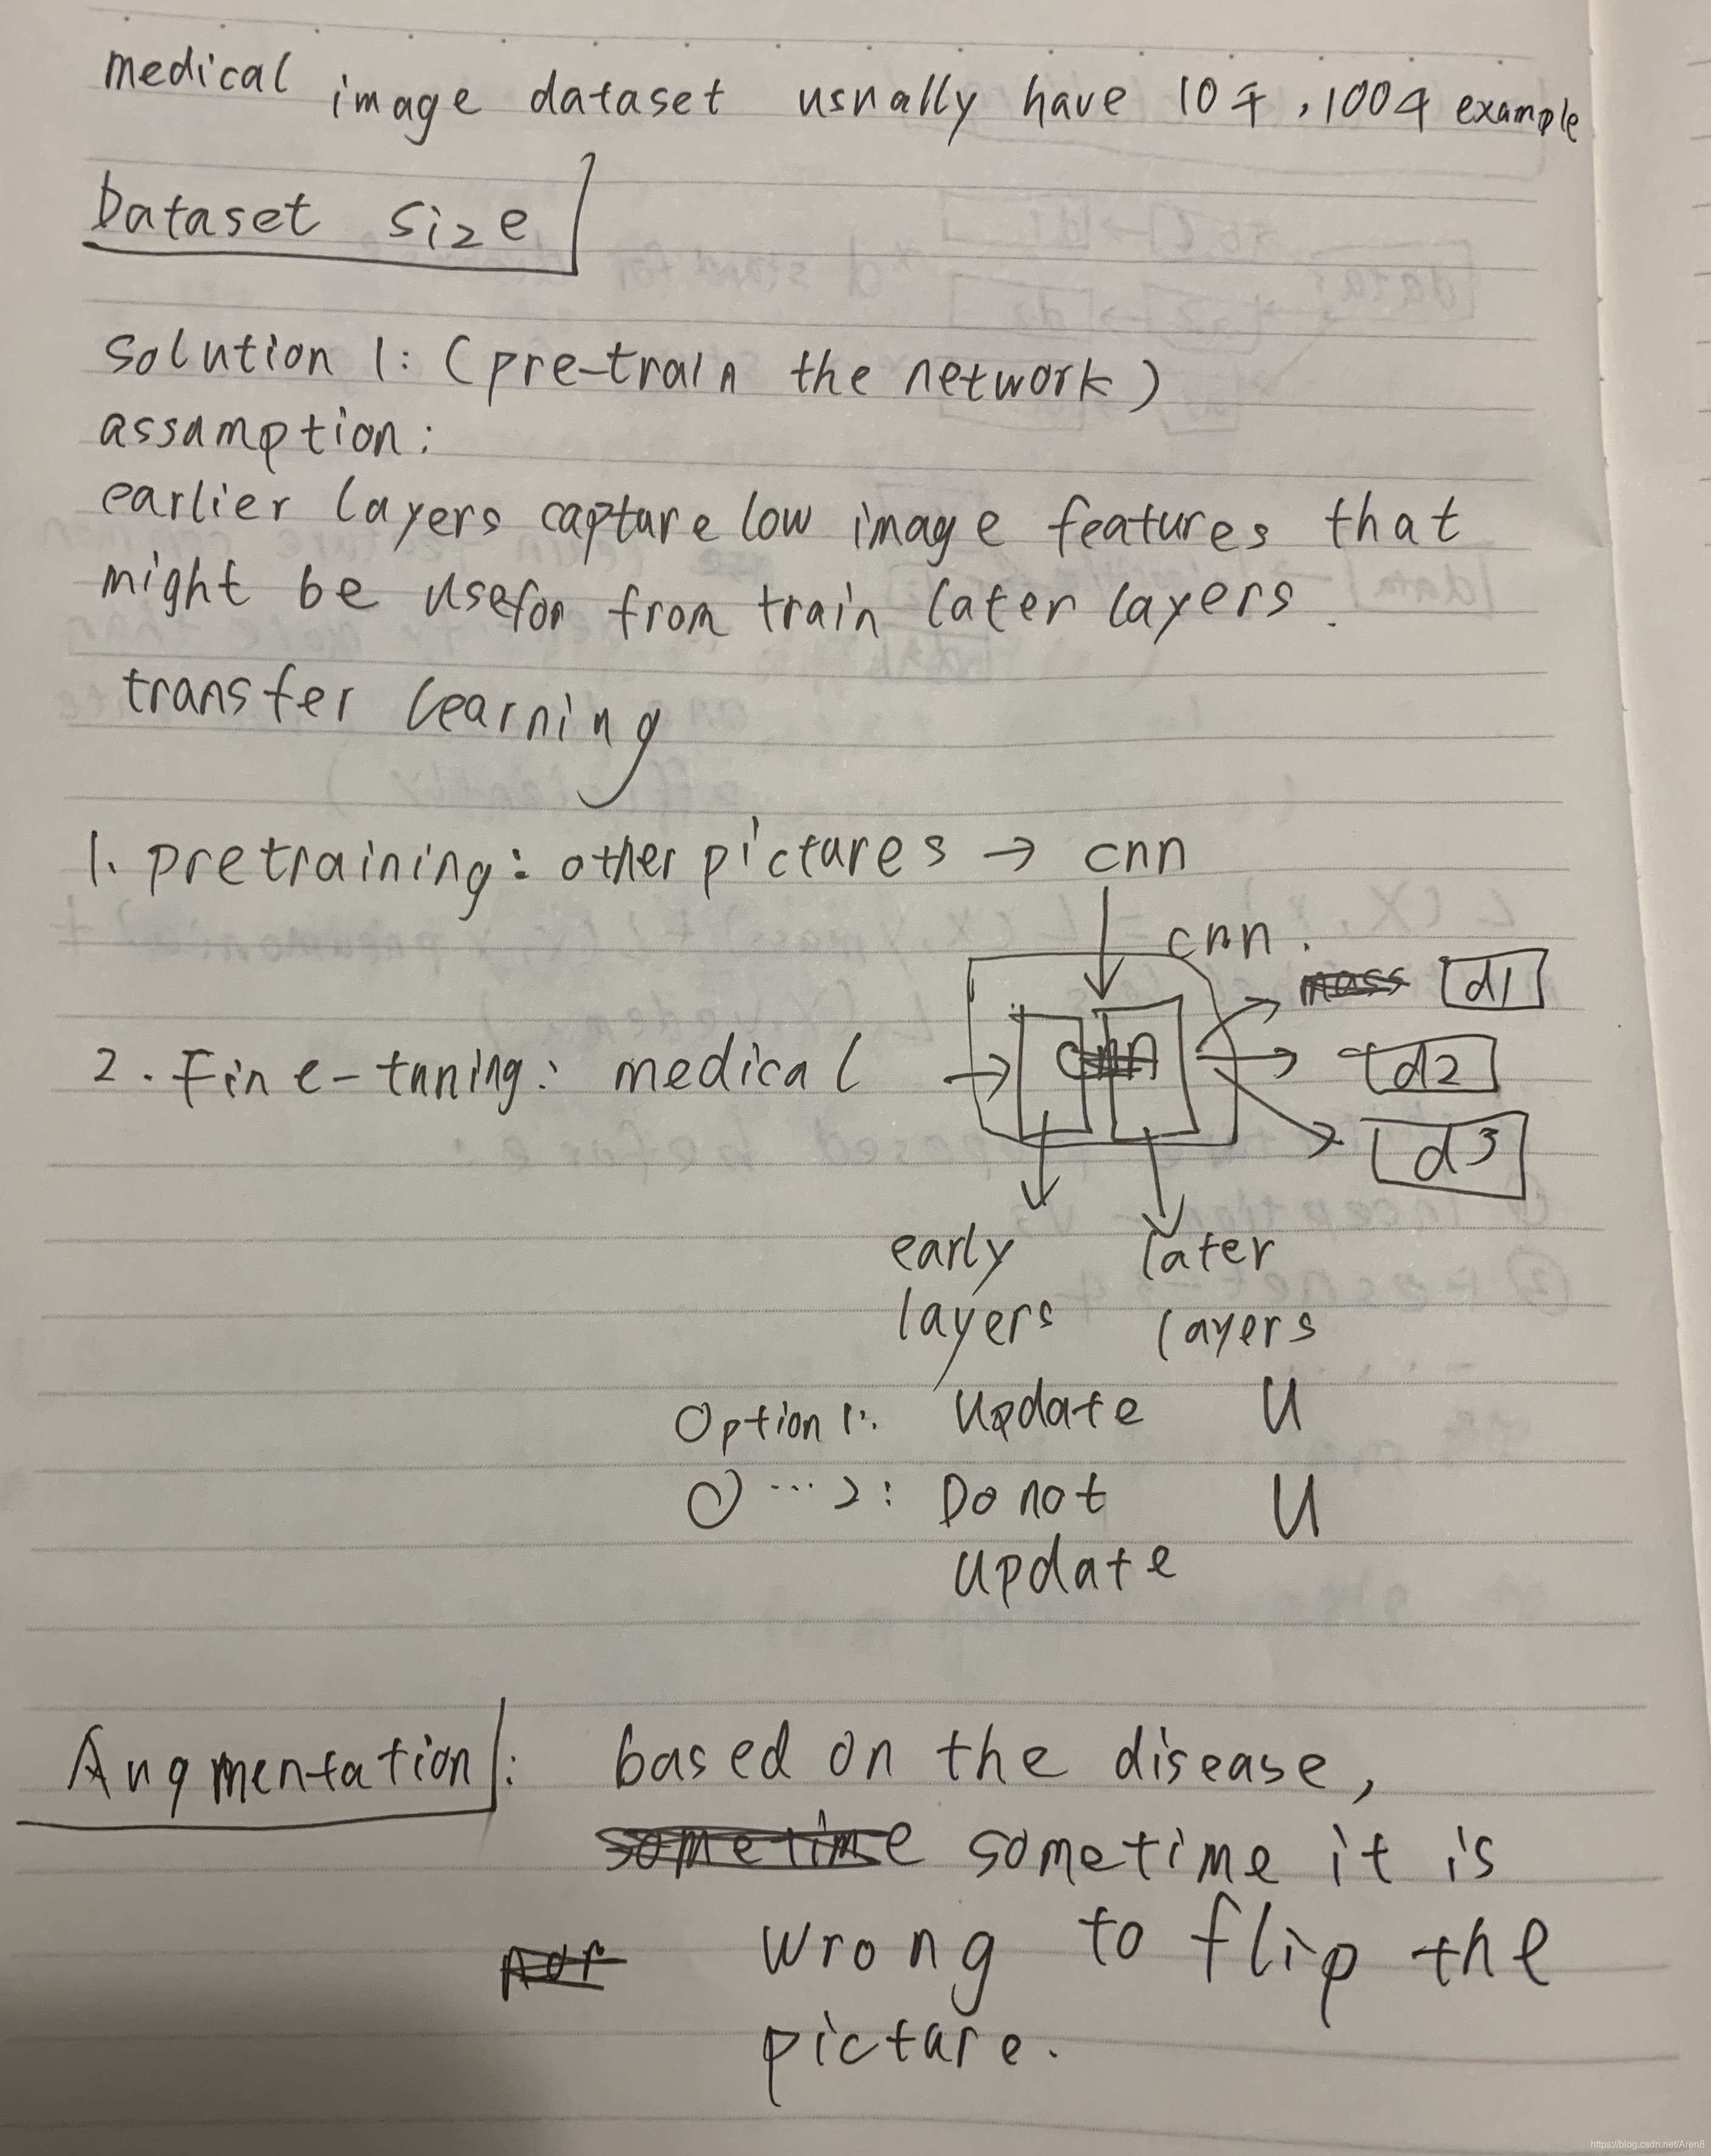 medical image dataset usually have 10千,100千 example
Dataset size
solution 1: (pre-train the network)
assumption:
earlier layers capture low image features that
might be usefor from train later layers.
transfer learning
1. pretraining: other pictures → cnn
cnn.
mass d1
2. Fine-tuning: medical → cnn
d2
d3
early later
layers layers
Option 1: update U
O ... 2: Do not U
update
Augmentation: based on the disease,
sometime sometime it is
wrong to flip the
picture.
https://blog.csdn.net/Aren8